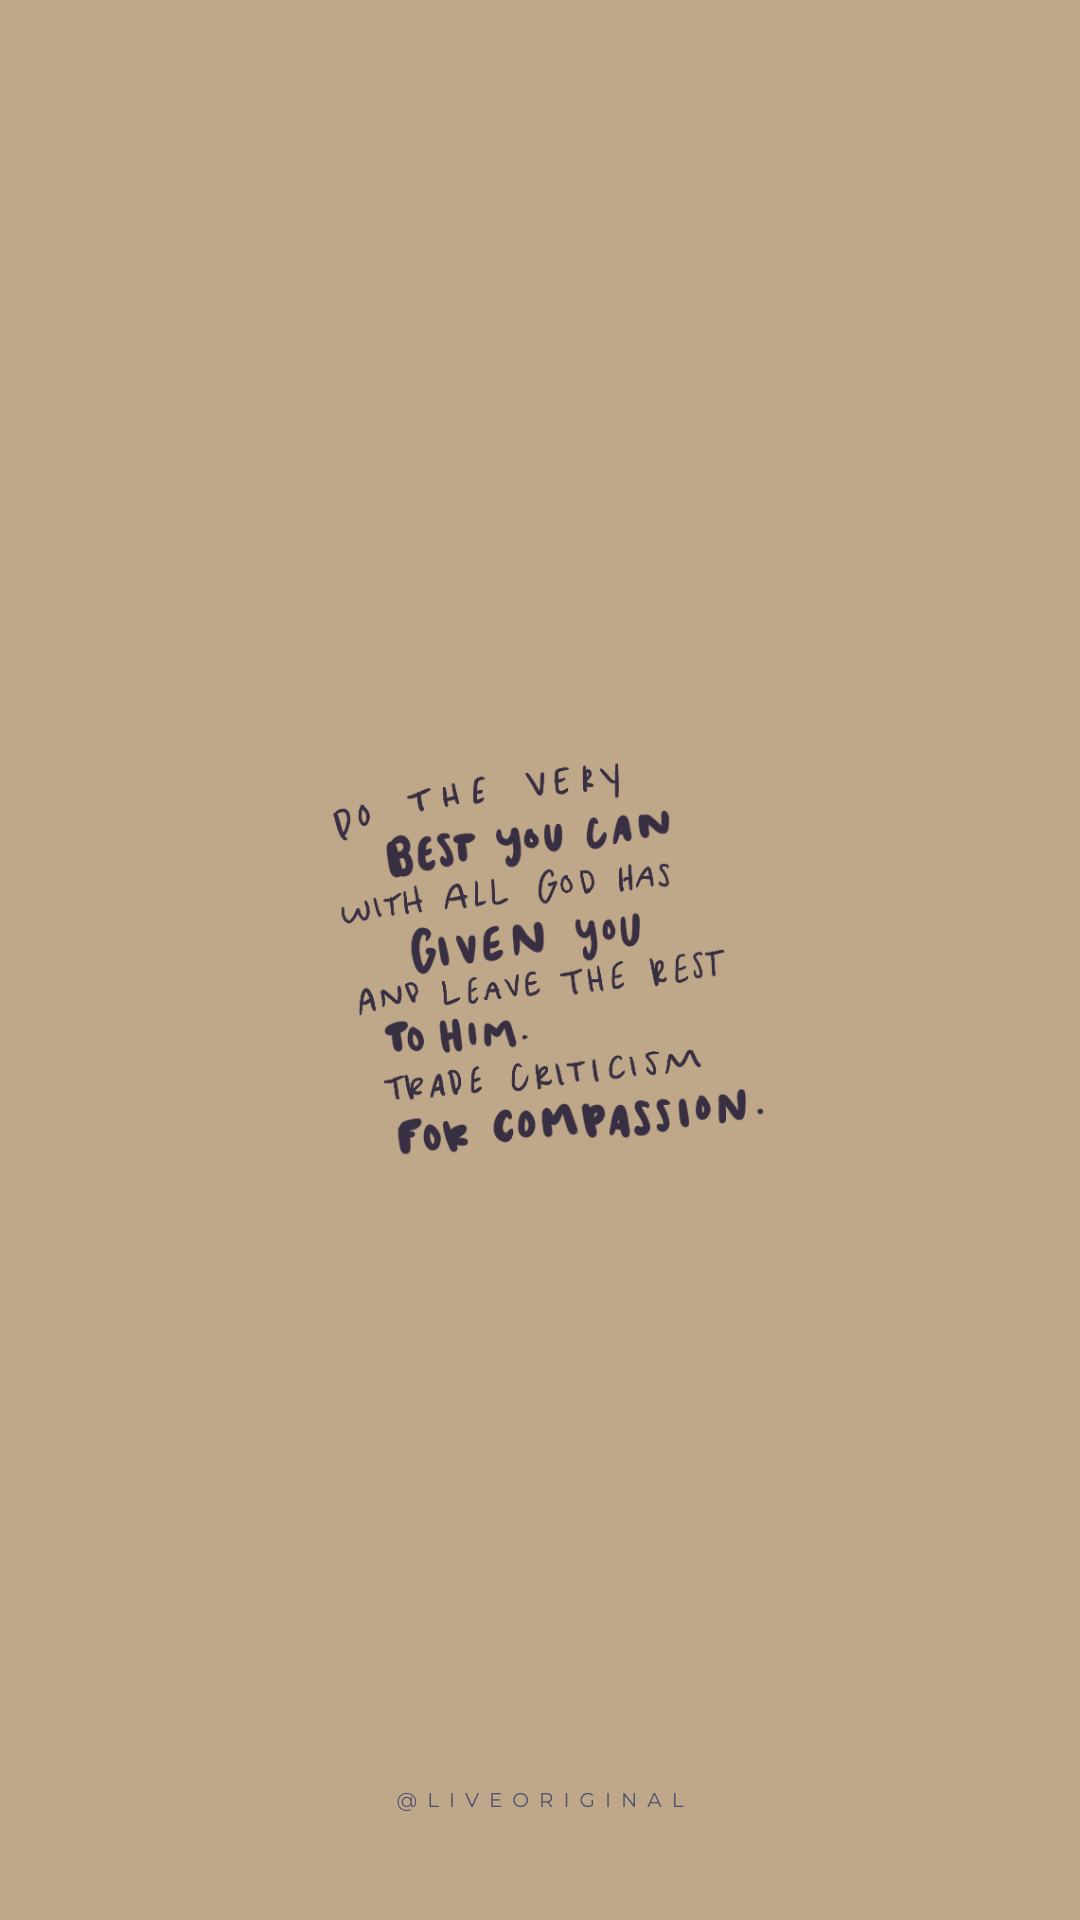 DO THE VERY
BEST YOU CAN
WITH ALL GOD HAS
GIVEN YOU
AND LEAVE THE REST
TO HIM.
TRADE CRITICISM
FOR COMPASSION.
@LIVEORIGINAL